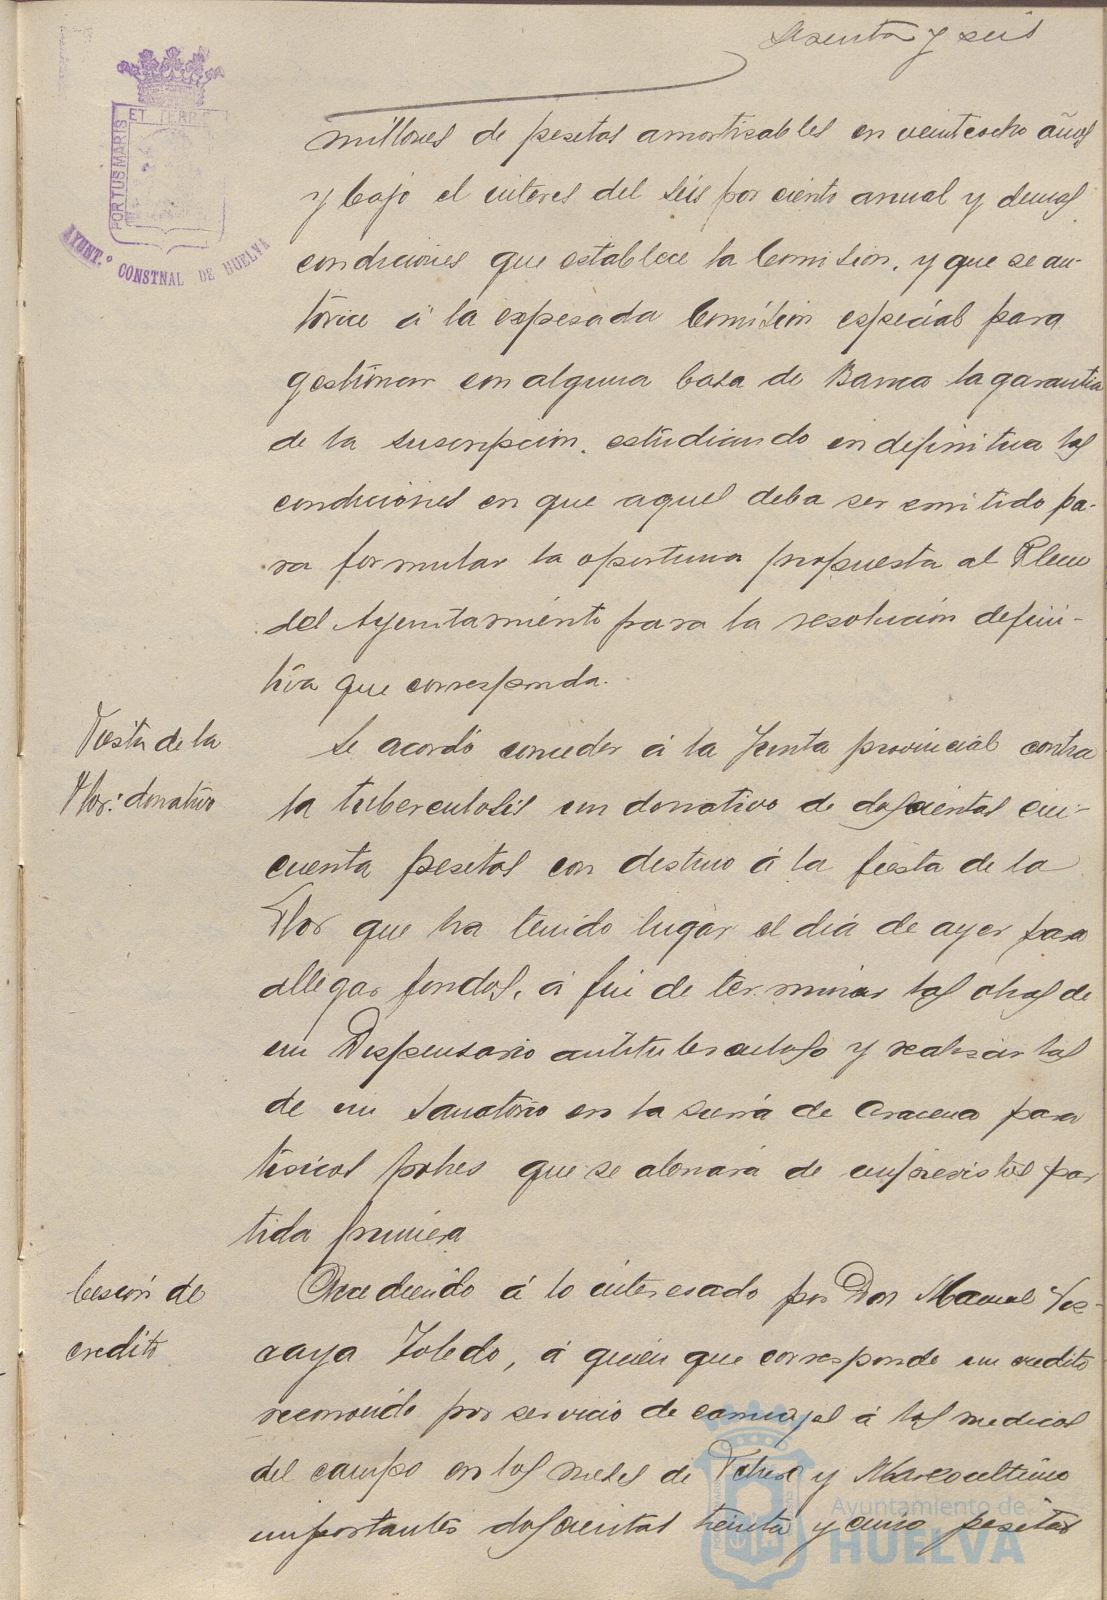 sesenta y seis
ET TERRE
PORTUS MARIS
AYUNT.º CONSTNAL DE HUELVA
millones de pesetas amortizables en veinteocho años
y bajo el interes del seis por ciento anual y demas
condiciones que establece la Comision, y que se au-
torice á la expresada Comision especial para
gestionar con alguna Casa de Banca la garantia
de la suscripcion, estudiando en definitiva las
condiciones en que aquel deba ser emitido pa-
ra formular la oportuna propuesta al Pleno
del Ayuntamiento para la resolucion defini-
tiva que corresponda.
Fiesta de la
Flor: donativo
Se acordó conceder á la Junta provincial contra
la tuberculosis un donativo de doscientas cin-
cuenta pesetas con destino á la fiesta de la
Flor que ha tenido lugar el dia de ayer para
allegar fondos, á fin de terminar las obras de
un Dispensario antituberculoso y realizar las
de un Sanatorio en la sierra de Aracena para
tisicos pobres que se abonará de imprevistos par
tida primera
Cesión de
credito
Accediendo á lo interesado por Don Manuel
Toledo, á quien que corresponde un credito
reconocido por servicio de carruajes á los medicos
del campo en los meses de Febrero y Marzo ultimo
importantes doscientas treinta y cinco pesetas
Ayuntamiento de
HUELVA